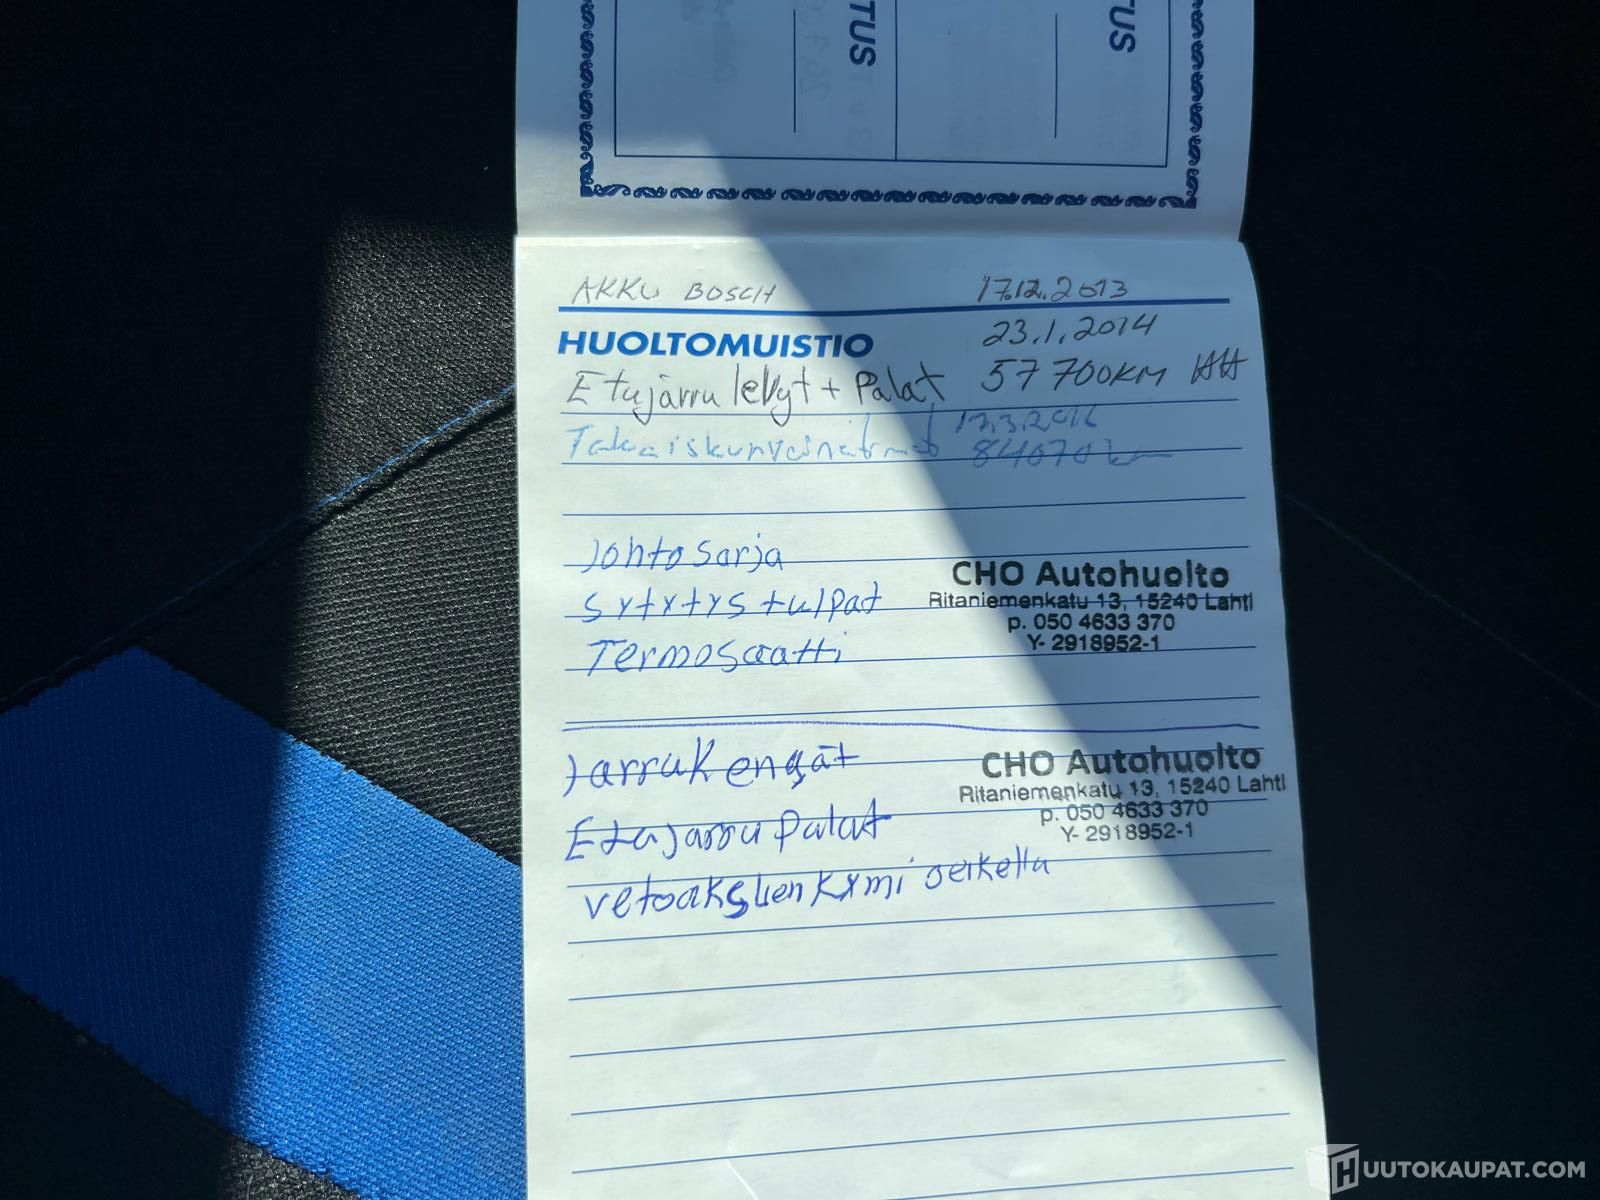 TUS
TUS
AKKU BOSCH 17.12.2013
HUOLTOMUISTIO 23.1.2014
Etujarru levyt + Palat 57 700KM
Takaiskunvaimentimet
84070 km
Johtosarja
CHO Autohuolto
sytytystulpat
Ritaniemenkatu 13, 15240 Lahti
p. 050 4633 370
Termosaatti
Y- 2918952-1
Jarrukengät
CHO Autohuolto
Ritaniemenkatu 13, 15240 Lahti
Etujarru palat
p. 050 4633 370
Y- 2918952-1
vetoakslien
HUUTOKAUPAT.COM